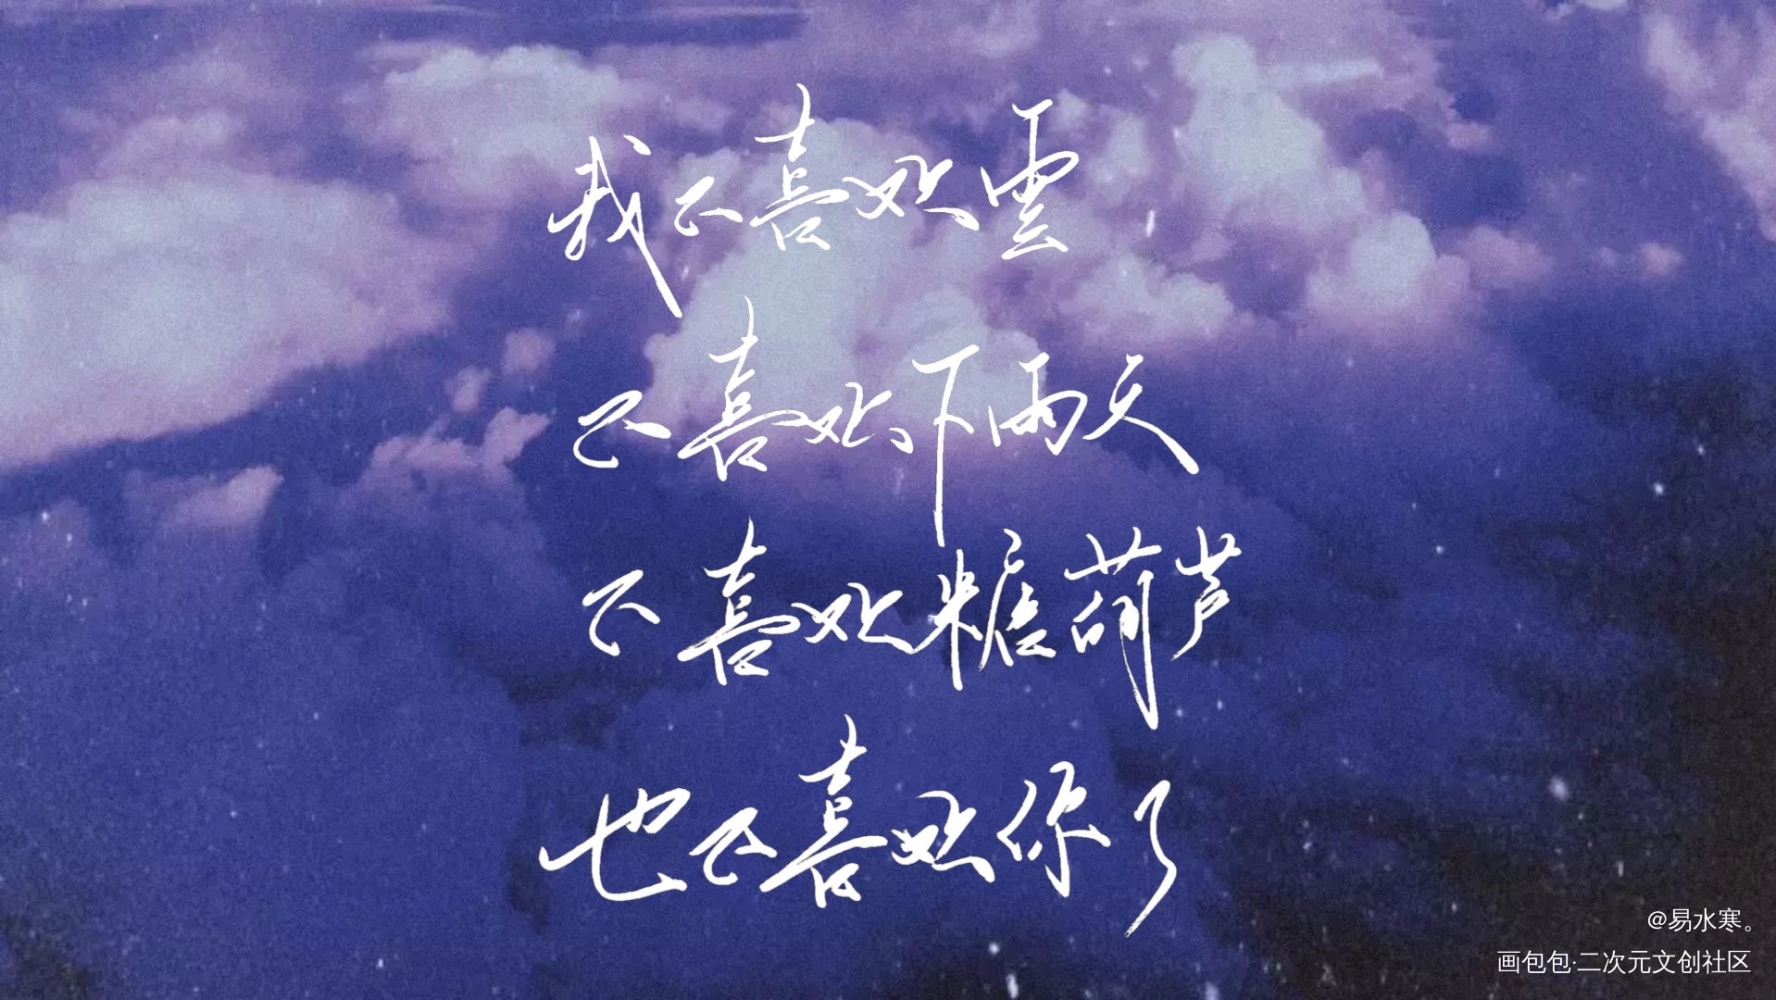 我不喜欢雲
不喜欢下雨天
不喜欢糖葫芦
也不喜欢你了
@易水寒。
画包包·二次元文创社区